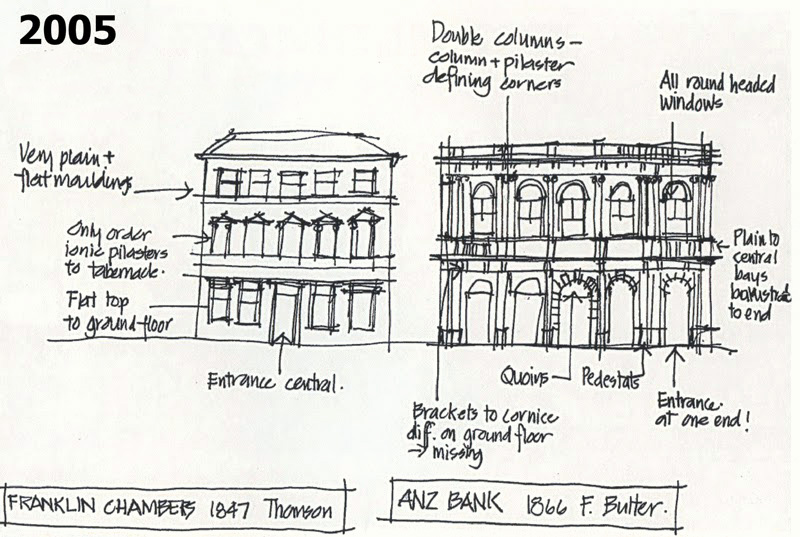 2005
Double columns –
column + pilaster
defining corners
All round headed
windows
Very plain +
flat mouldings
Only order
ionic pilasters
to tabernacle.
Flat top
to ground floor
Plain to
central
bays
ballustrade
to end
Entrance central.
Quoins
Pedestals
Entrance
at one end!
Brackets to cornice
diff. on ground floor
→ missing
FRANKLIN CHAMBERS 1847 Thomson
ANZ BANK 1866 F. Butler.